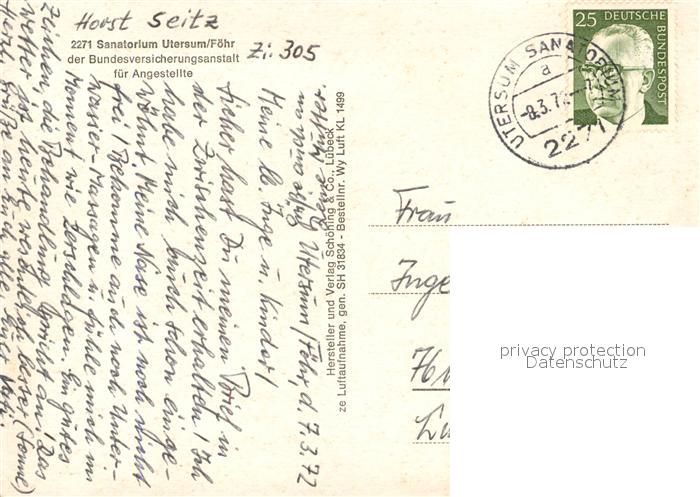 Horst Seitz
2271 Sanatorium Utersum/Föhr
der Bundesversicherungsanstalt
für Angestellte
Zi. 305
Utersum/Föhr, d. 7.3.72
Meine lb. Inge u. Kinder!
Sicher hast Du meinen Brief in
der Zwischenzeit erhalten! Ich
habe mich auch schon einge-
wöhnt. Meine Nase ist noch nicht
frei! Bekomme auch noch Unter-
wasser-Massagen u. fühle mich im
Moment wie zerschlagen. Ein gutes
Zeichen, die Behandlung spricht an! Das
Wetter ist heute wieder besser (Sonne)
Hersteller und Verlag Schöning & Co., Lübeck
ze Luftaufnahme, gen. SH 31834 - Bestellnr. Wy Luft KL 1499
25 DEUTSCHE
BUNDESPOST
UTERSUM SANATORIUM
a
-8.3.72
2271
Frau
Inge
privacy protection
Datenschutz